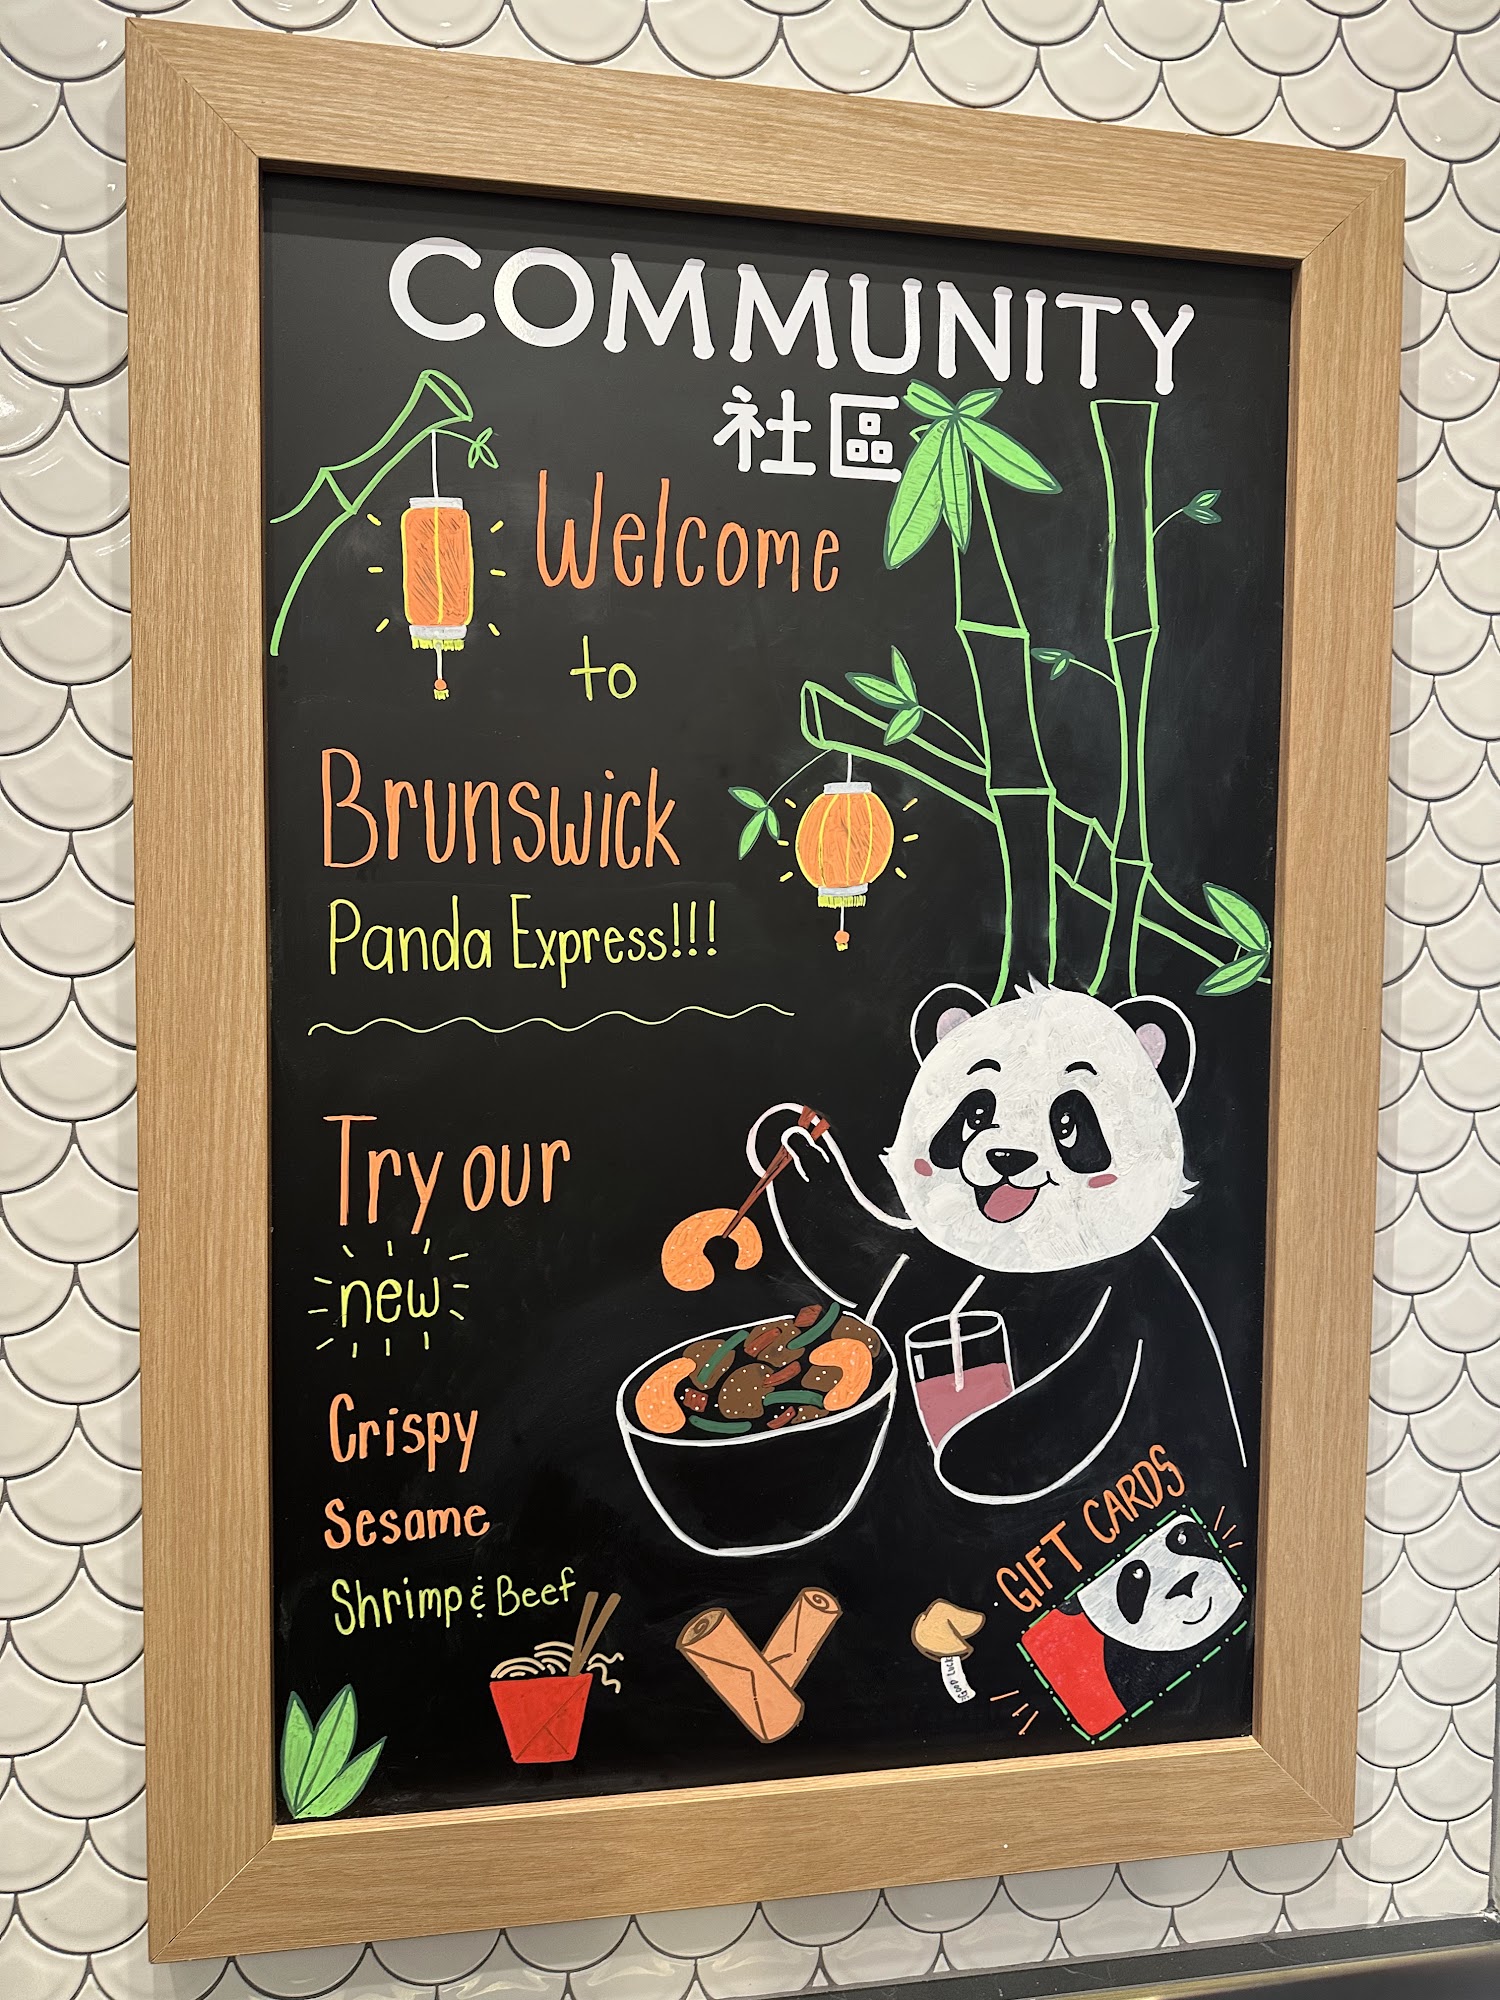 COMMUNITY
社區
Welcome
to
Brunswick
Panda Express!!!
Try our
new
Crispy
Sesame
Shrimp & Beef
GIFT CARDS
Good Luck